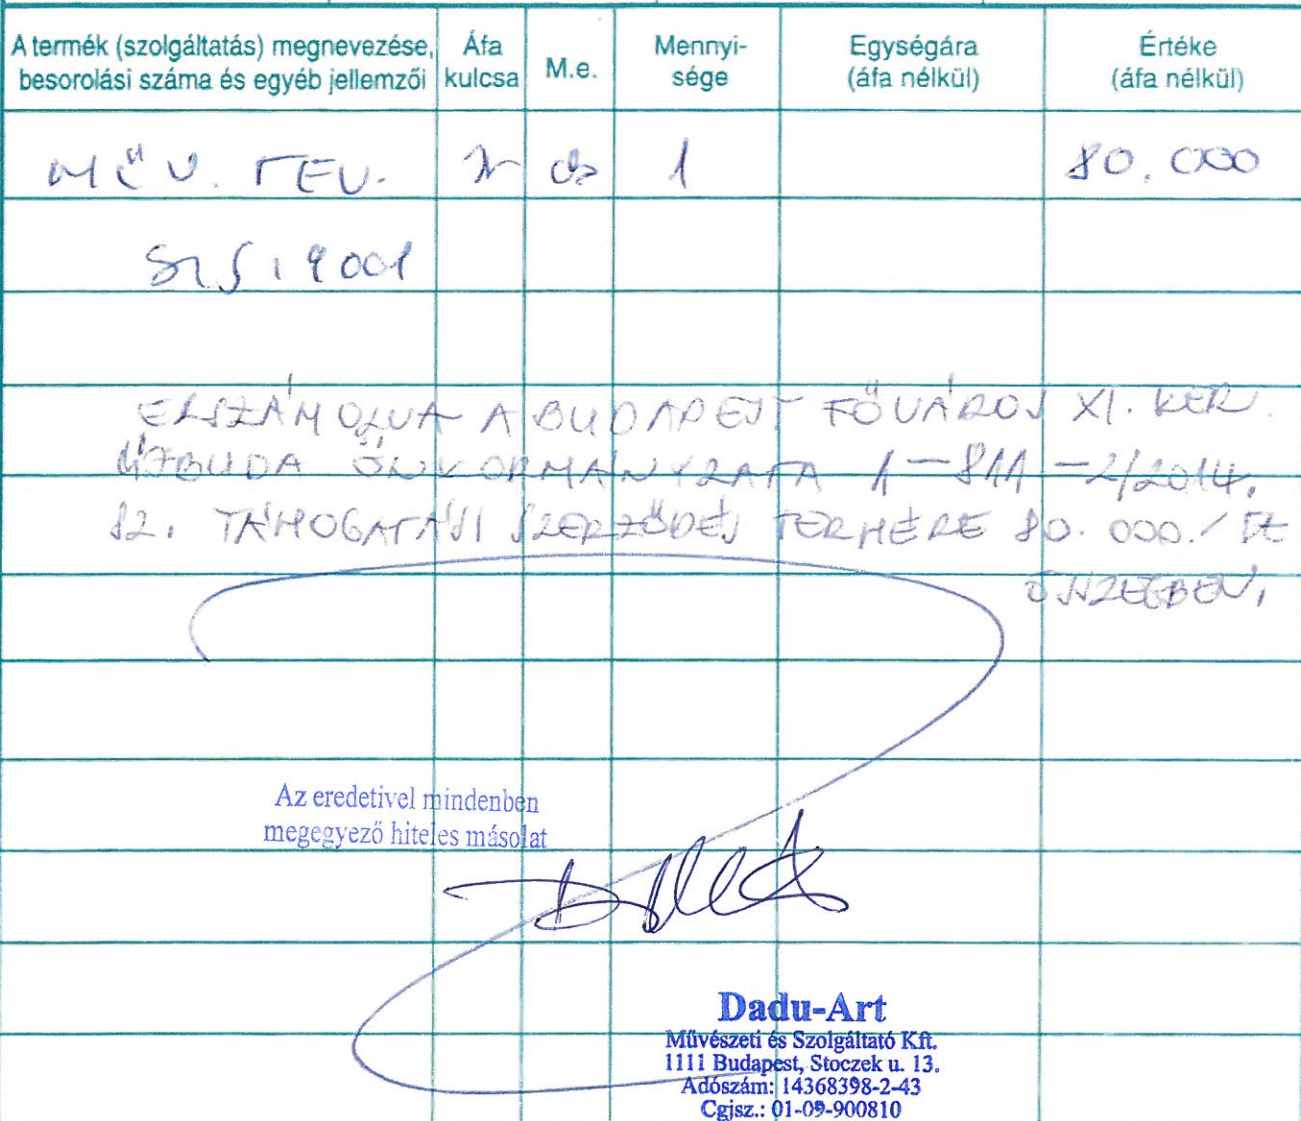 A termék (szolgáltatás) megnevezése, besorolási száma és egyéb jellemzői
Áfa kulcsa
M.e.
Mennyi-sége
Egységára (áfa nélkül)
Értéke (áfa nélkül)
MŰV. TEV. db 1 80.000
19001
ELSZÁMOLVA A BUDAPEST FŐVÁROS XI. KER.
ÚJBUDA ÖNKORMÁNYZATA 1-811-2/2014.
SZ. TÁMOGATÁSI SZERZŐDÉS TERHÉRE 80.000./Ft
ÖSSZEGBEN.
Az eredetivel mindenben
megegyező hiteles másolat
Dadu-Art
Művészeti és Szolgáltató Kft.
1111 Budapest, Stoczek u. 13.
Adószám: 14368398-2-43
Cgjsz.: 01-09-900810